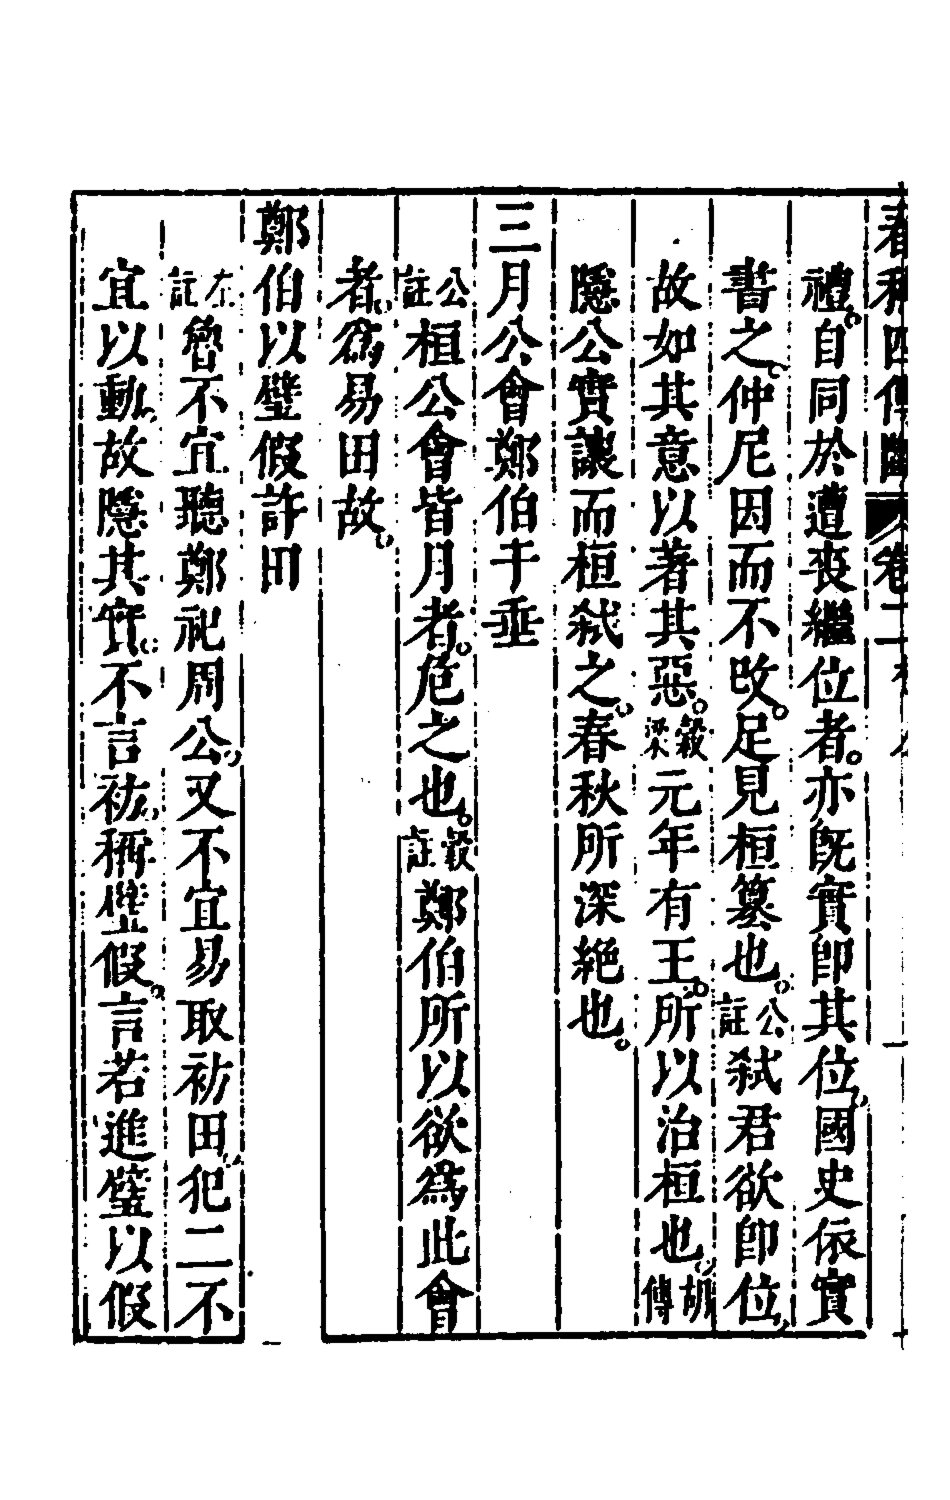 春秋四傳斷 卷二
禮。自同於遭喪繼位者。亦旣實卽其位、國史依實
書之。仲尼因而不改。足見桓簒也。公註弑君欲卽位、
故如其意以著其惡。穀梁元年有王。所以治桓也。胡傳
隱公實讓而桓弑之。春秋所深絶也。
三月公會鄭伯于垂
公註桓公會皆月者。危之也。穀註鄭伯所以欲爲此會
者、爲易田故。
鄭伯以璧假許田
左註魯不宜聽鄭祀周公、又不宜易取祊田、犯二不
宜以動、故隱其實。不言祊、稱璧假。言若進璧以假